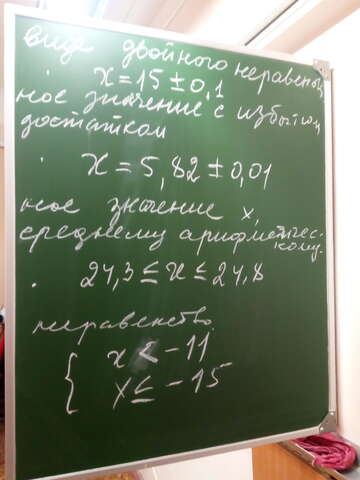 виде двойного неравенс
x = 15 ± 0,1
ное значение с избытком
достатком
x = 5,82 ± 0,01
ное значение x,
среднему арифметичес-
кому.
24,3 ≤ x ≤ 24,8
неравенство
{ x < -11
x ≤ -15